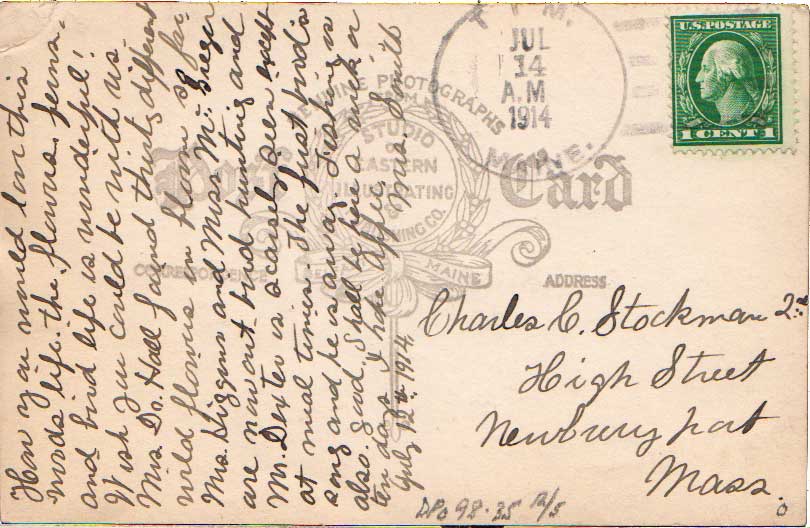 How you would love this
woods life, the flowers, ferns,
and bird life is wonderful!
Wish you could be with us.
Mrs. Dr. Hall found thirty different
wild flowers in bloom so far.
Mrs. Higgins and Miss
are now out bird hunting and
Mr. Dexter is scarcely seen except
at meal times. The first bird's
song and he is away. Fishing is
also good. Shall be here a week or
ten days I hope. Mrs. Smith
July 12th 1914
GENUINE PHOTOGRAPHS
FROM
STUDIO
OF
EASTERN
ILLUSTRATING
&
PUBLISHING CO.
BELFAST MAINE
Post Card
CORRESPONDENCE
ADDRESS
JUL
14
A.M
1914
U.S. POSTAGE
1 CENT 1
Charles C. Stockman 2nd
High Street
Newburyport
Mass.
DPO 98-35 12/5